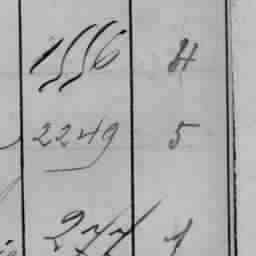 1556 4
2249 5
277 1